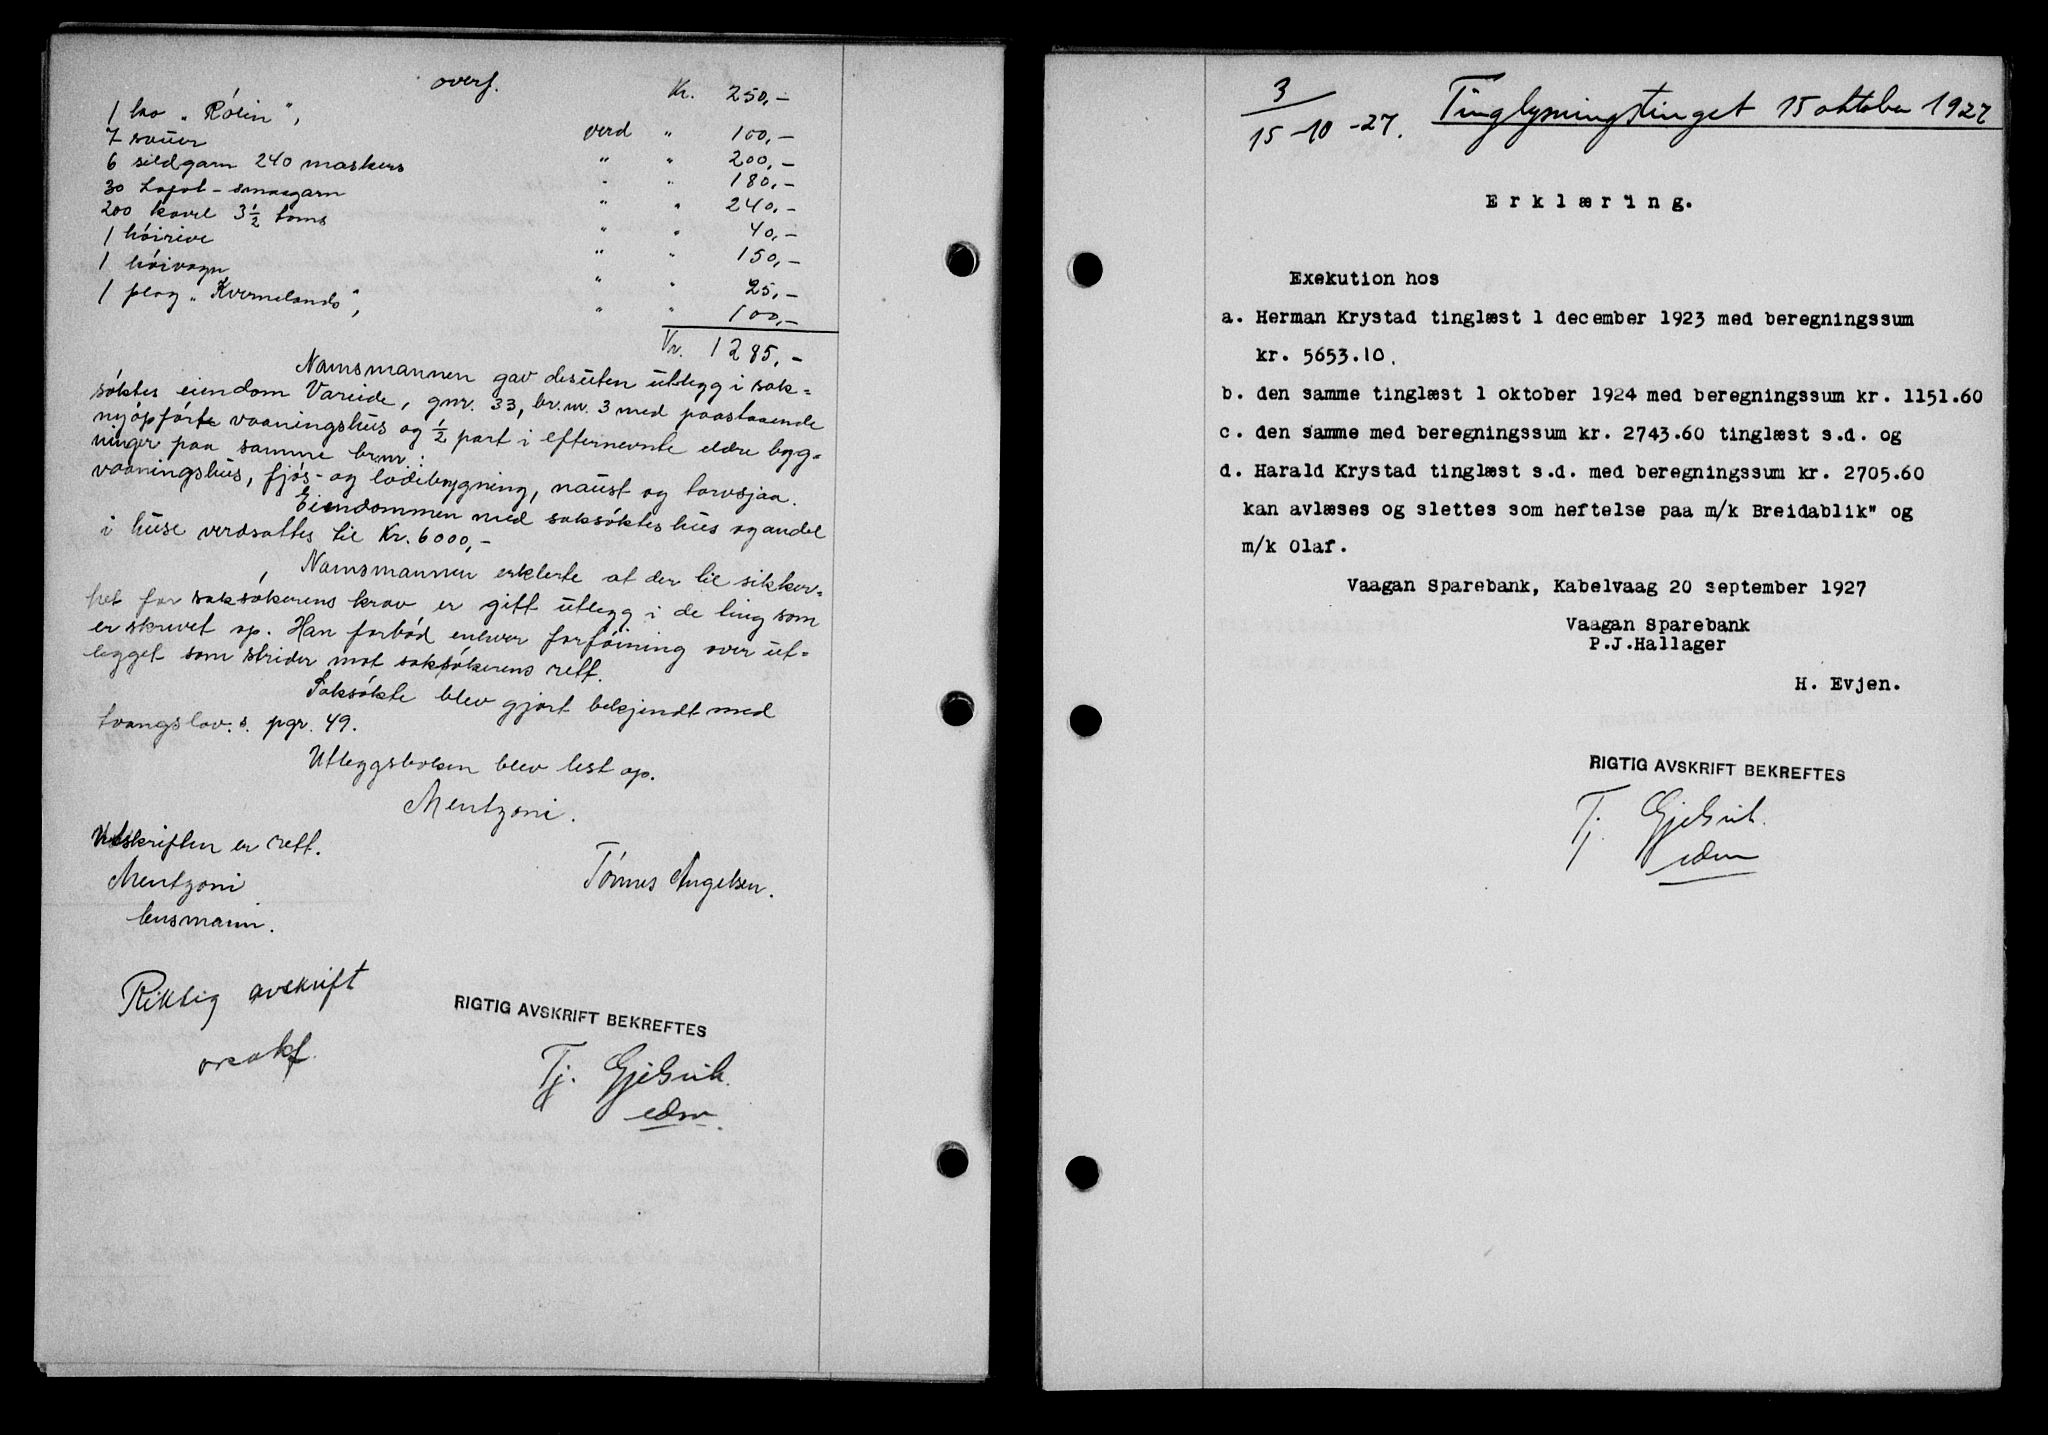 overf. Kr. 250,-
1 ko „Rólin", verd " 100,-
7 sauer " " 200,-
6 sildgarn 240 maskers " " 180,-
30 Lofot-smaagarn " " 240,-
200 kavel 3½ toms " " 40,-
1 hóirive " " 150,-
1 hóivogn " " 25,-
1 plog „Kvernelands", " " 100,-
Kr. 1285,-
Namsmannen gav desuten utlegg i sak-
sóktes eiendom Vareide, gnr. 33, br.nr. 3 med paastaaende
nyópfórte vaaningshus og ½ part i efternevnte eldre byg-
ninger paa samme br.nr.:
vaaningshus, fjós- og lódebygning, naust og torvsjaa.
Eiendommen med saksóktes hus og andel
i huse verdsattes til Kr. 6000,-
Namsmannen erklerte at der til sikker-
het for saksókerens krav er gitt utlegg i de ting som
er skrevet op. Han forbód enhver forfóining over ut-
legget som strider mot saksókerens rett.
Saksókte blev gjort bekjendt med
tvangslov. s. pgr. 49.
Utleggsboken blev lest op.
Mentzoni.
Utskriften er rett.
Mentzoni Tónnes Angelsen.
lensmann.
Riktig avskrift
RIGTIG AVSKRIFT BEKREFTES
Tj. Gjelsvik
edsv.
3
15-10-27. Tinglysningstinget 15 oktober 1927
Erklæring.
Exekution hos
a. Herman Krystad tinglæst 1 december 1923 med beregningssum
kr. 5653.10.
b. den samme tinglæst 1 oktober 1924 med beregningssum kr. 1151.60
c. den samme med beregningssum kr. 2743.60 tinglæst s.d. og
d. Harald Krystad tinglæst s.d. med beregningssum kr. 2705.60
kan avlæses og slettes som heftelse paa m/k Breidablik" og
m/k Olaf.
Vaagan Sparebank, Kabelvaag 20 september 1927
Vaagan Sparebank
P.J.Hallager
H. Evjen.
RIGTIG AVSKRIFT BEKREFTES
Tj. Gjelsvik
edsv